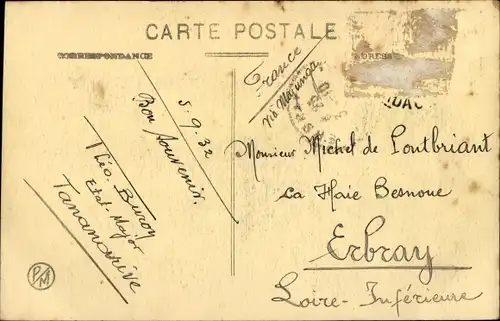 CARTE POSTALE
CORRESPONDANCE
ADRESSE
5-9-32
Bon souvenir.
Théo. Buron
Etat-Major
Tananarive
France
via Majunga
Monsieur Michel de Pontbriant
La Haie Besnoue
Erbray
Loire-Inférieure